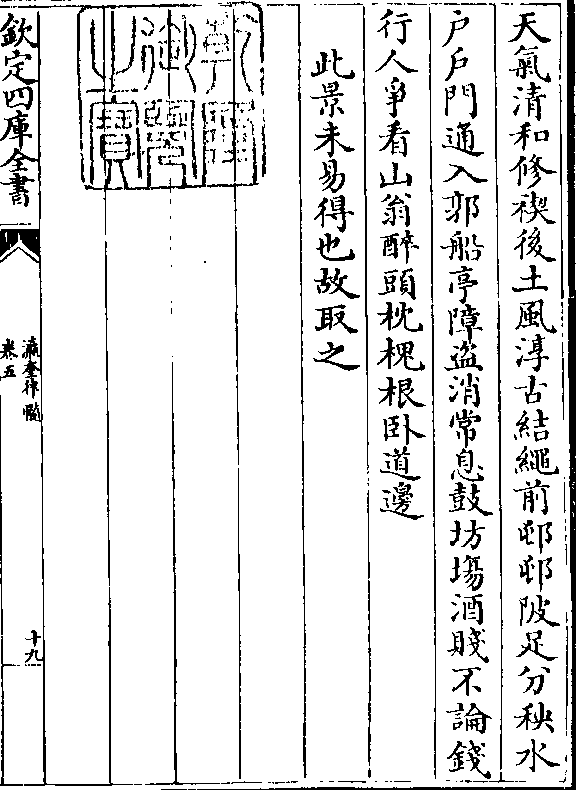 天氣清和修禊後土風淳古結繩前邨邨陂足分秧水
户户門通入郭船亭障盗消常息鼓坊塲酒賤不論錢
行人爭看山翁醉頭枕槐根卧道邊
此景未易得也故取之
乾隆御覽之寶
欽定四庫全書
瀛奎律髓
卷五
十九